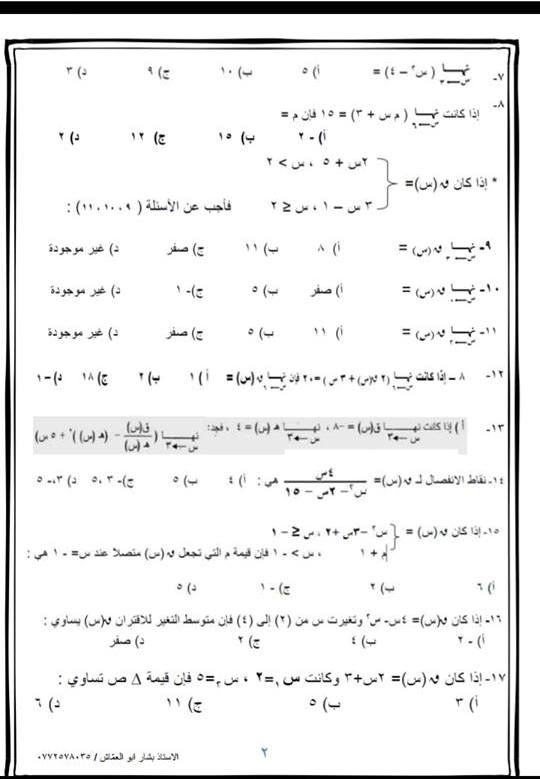 ٧- نهــا س←٣ (س٢ – ٤) = أ) ٥ ب) ١٠ ج) ٩ د) ٣
٨- إذا كانت نهــا س←٦ (م س + ٣) = ١٥ فإن م =
أ) - ٢ ب) ١٥ ج) ١٢ د) ٢
* إذا كان ق (س) = { ٢س + ٥ ، س > ٢
٣ س – ١ ، س ≤ ٢ فأجب عن الأسئلة ( ١١،١٠،٩ ) :
٩- نهــا ق (س) = أ) ٨ ب) ١١ ج) صفر د) غير موجودة
١٠- نهــا ق (س) = أ) صفر ب) ٥ ج) -١ د) غير موجودة
١١- نهــا ق (س) = أ) ١١ ب) ٥ ج) صفر د) غير موجودة
١٢- ٨ – إذا كانت نهــا (٢ ق(س) + ٣ س) = ٢٠ فإن نهــا ق (س) = أ) ١ ب) ٢ ج) ١٨ د) -١
١٣- أ ) إذا كانت نهــا س←٣ ق(س) = -٨ ، نهــا س←٣ هـ (س) = ٤ ، فجد: نهــا س←٣ (ق(س)/هـ (س) – (هـ (س))٢ + ٥ س)
١٤- نقاط الانفصال لـ ق (س) = ٤س / س٢ – ٢س – ١٥ هي : أ) ٤ ب) ٥ ج) -٣ ،٥ د) ٣، -٥
١٥- إذا كان ق (س) = { س٢ –٣س +٢ ، س ≥ – ١
م + ١ ، س > - ١ فإن قيمة م التي تجعل ق (س) متصلاً عند س= - ١ هي :
أ) ٦ ب) ٢ ج) - ١ د) ٥
١٦- إذا كان ق(س)= ٤س- س٢ وتغيرت س من (٢) إلى (٤) فإن متوسط التغير للاقتران ق(س) يساوي :
أ) - ٢ ب) ٤ ج) ٢ د) صفر
١٧- إذا كان ق (س)= ٢س+٣ وكانت س١=٢ ، س٢=٥ فإن قيمة Δ ص تساوي :
أ) ٣ ب) ٥ ج) ١١ د) ٦
٢
الاستاذ بشار ابو العقاش / ٠٧٧٢٥٧٨٠٣٥